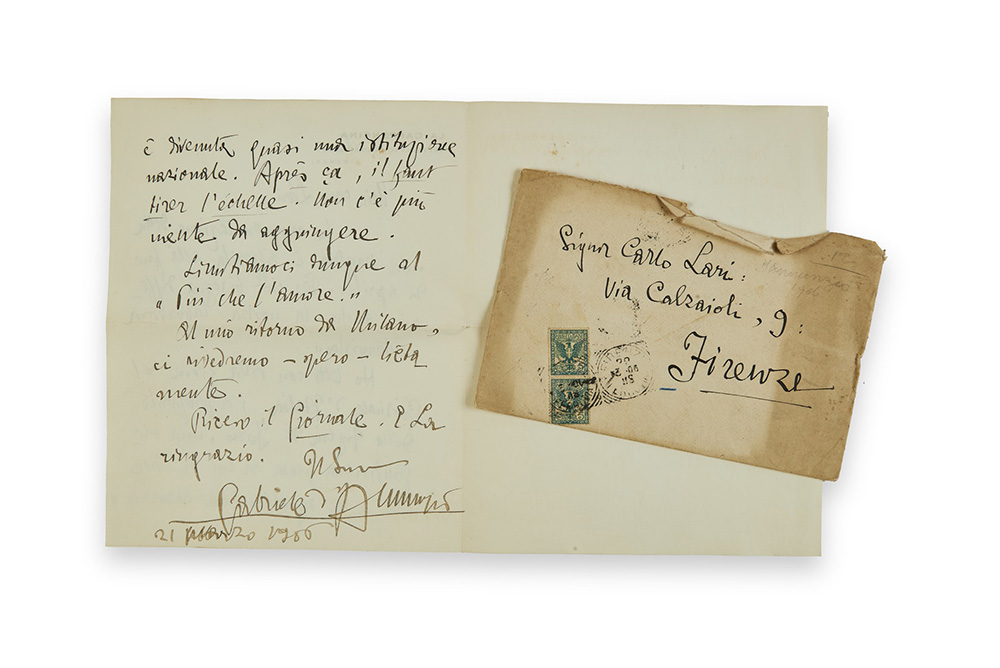 è divenuta quasi una istituzione
nazionale. Après ça, il faut
tirer l'échelle. Non c'è più
niente da aggiungere.
Limitiamoci dunque al
"Più che l'amore."
Al mio ritorno da Milano,
ci rivedremo – spero – lieta
mente.
Ricevo il Giornale. E La
ringrazio.
Il Suo
Gabriele d'Annunzio
21 marzo 1906
Signor Carlo Lari:
Via Calzaioli, 9:
Firenze